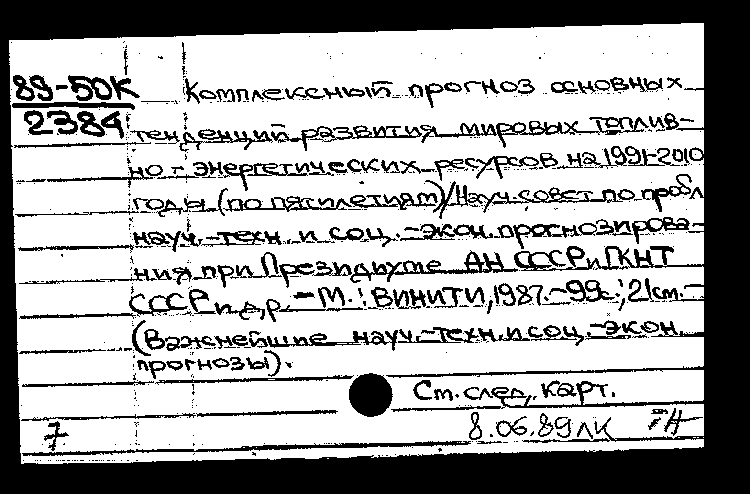 89-50К Комплексный прогноз основных
2384 тенденций развития мировых топлив-
но-энергетических ресурсов на 1991-2010
годы (по пятилетиям)/Науч. совет по пробл
науч.-техн. и соц.-экон. прогнозирова-
ния при Президиуме АН СССР и ГКНТ
СССР и др. - М.: ВИНИТИ, 1987.-99с.; 21см.-
(Важнейшие науч.-техн. и соц.-экон.
прогнозы).
См. след. карт.
7 8.06.89 ЛК